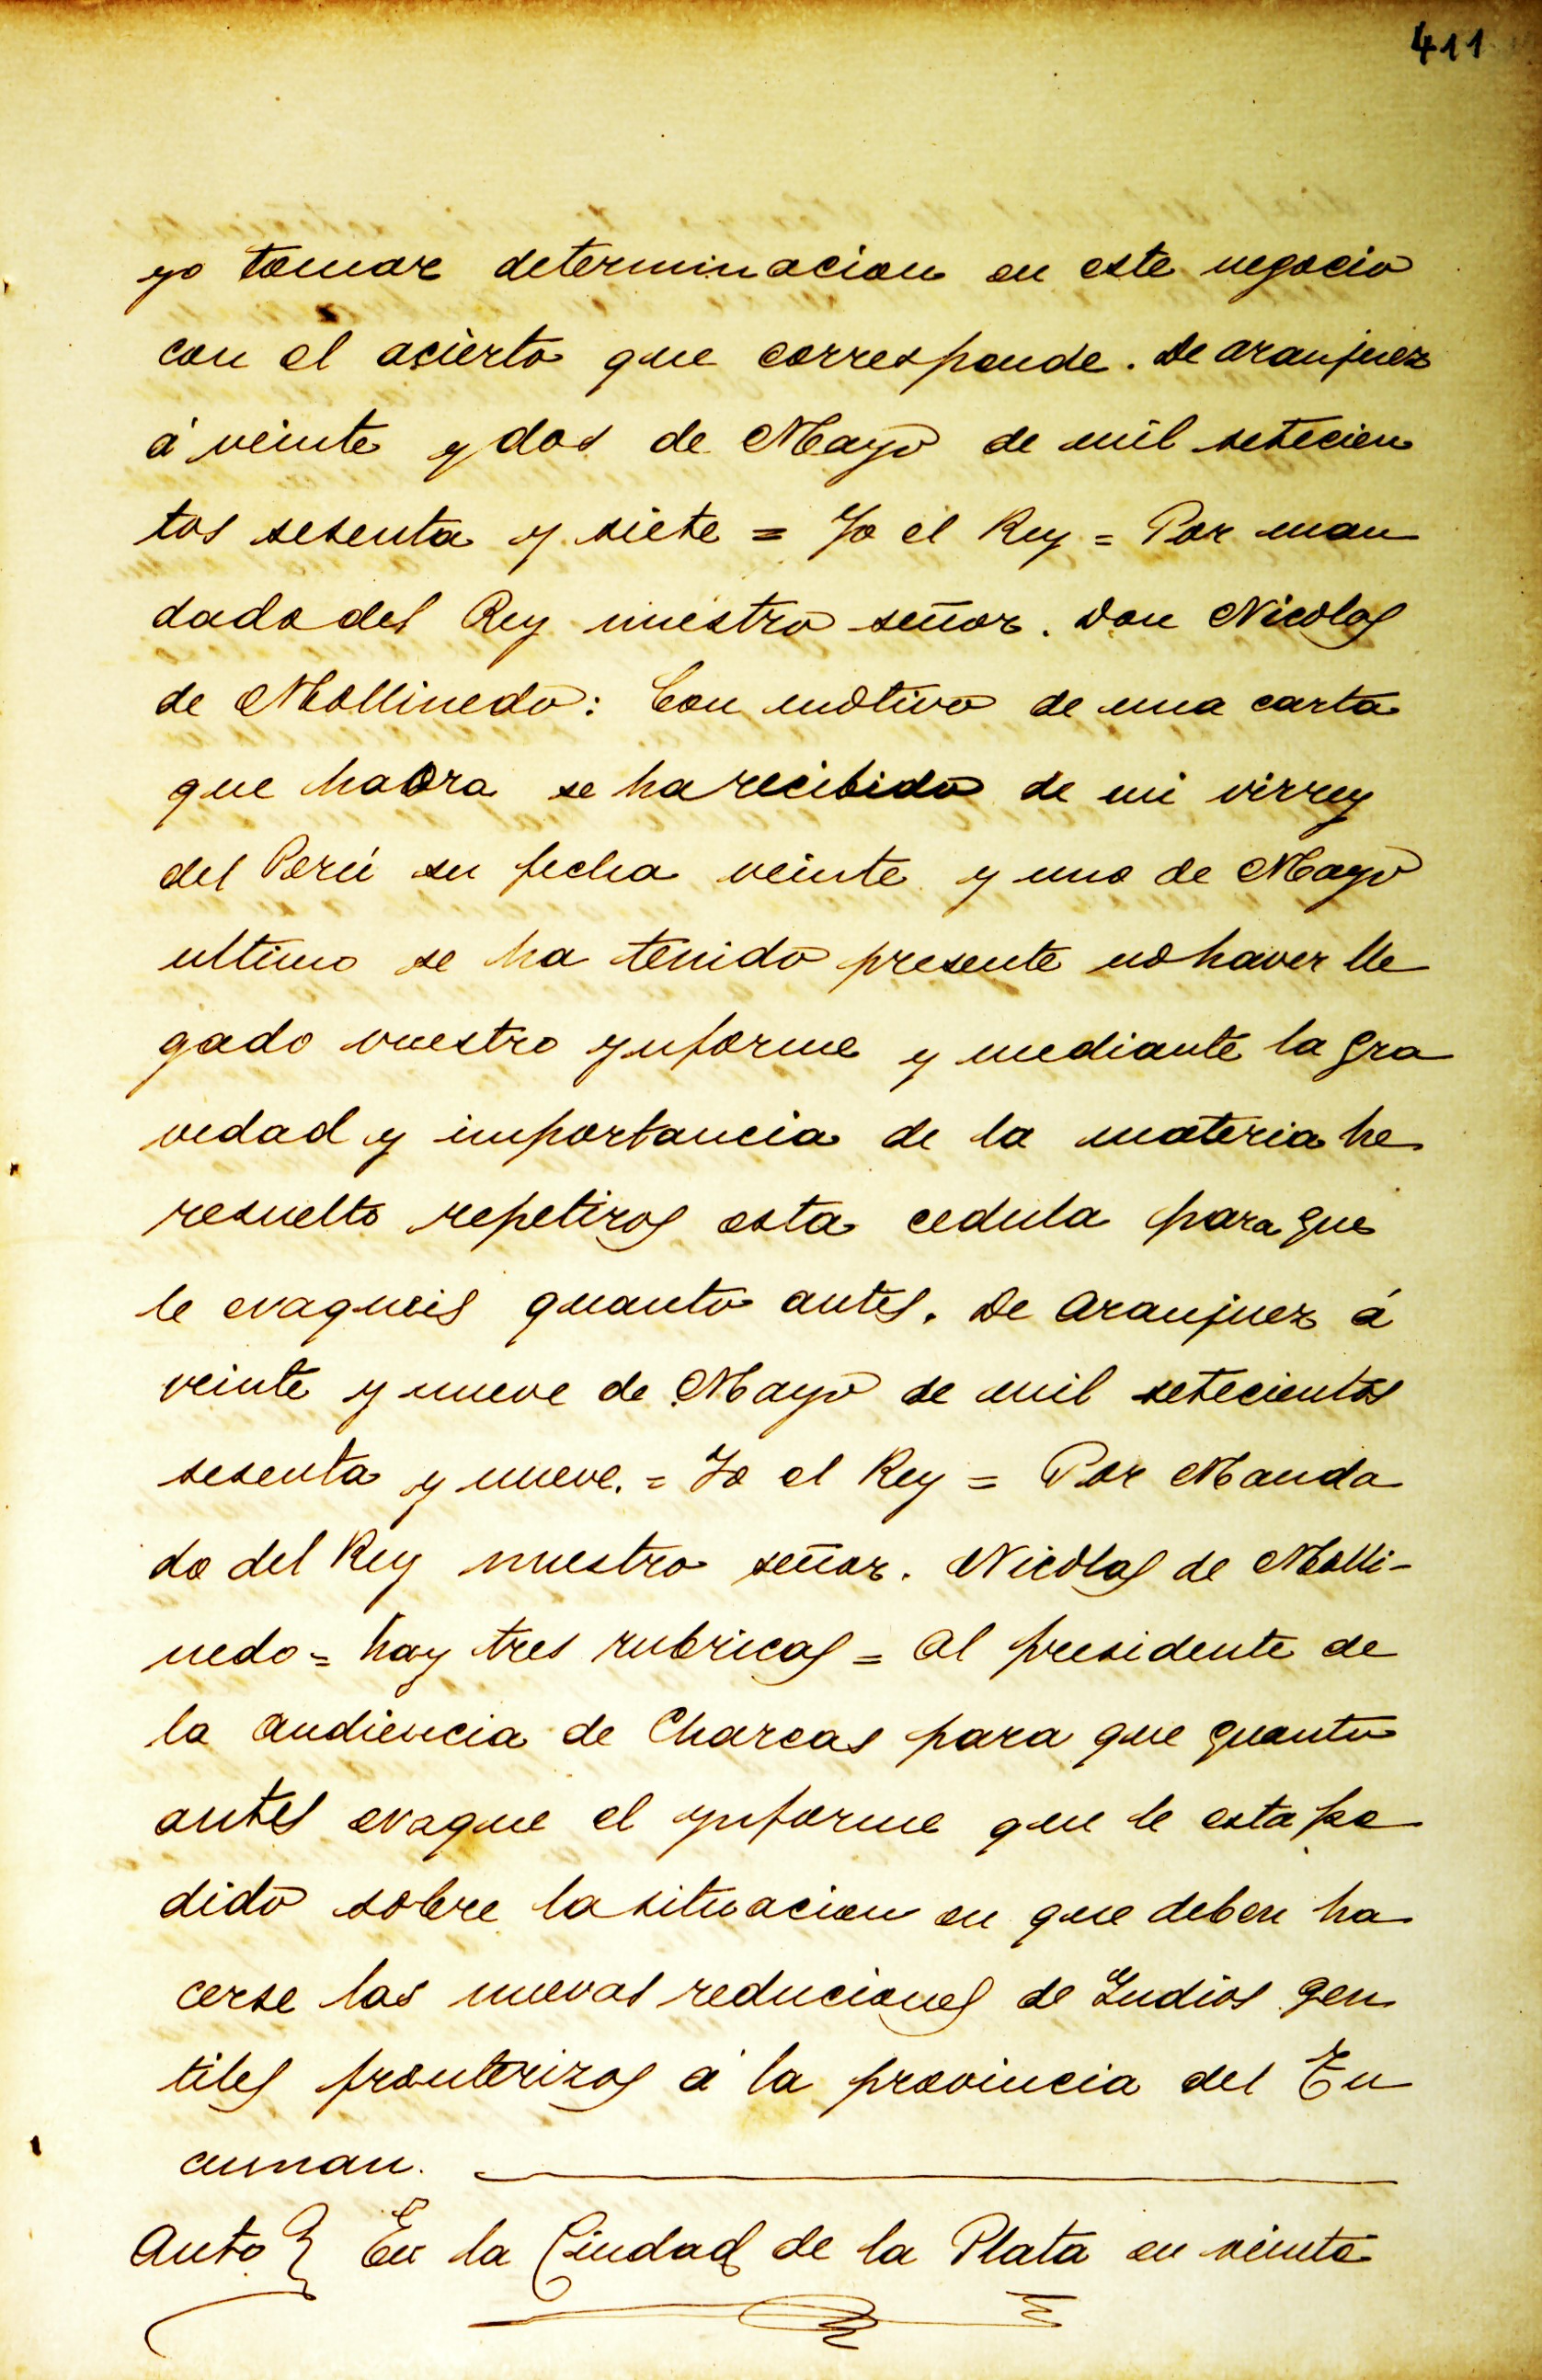 411
yo tomar determinacion en este negocio
con el acierto que corresponde. De aranjuez
á veinte y dos de Mayo de mil setecien
tos sesenta y siete = Yo el Rey = Por man
dado del Rey nuestro señor. Don Nicolas
de Mollinedo: Con motivo de una carta
que haora se ha recibido de mi virrey
del Perú su fecha veinte y uno de Mayo
ultimo se ha tenido presente no haver lle
gado vuestro ynforme y mediante la gra
vedad y importancia de la materia he
resuelto repetiros esta cedula para que
le evaqueis quanto antes. De Aranjuez á
veinte y nueve de Mayo de mil setecientos
sesenta y nueve. = Yo el Rey = Por Manda
do del Rey nuestro señor. Nicolas de Molli-
nedo = hay tres rubricas = Al presidente de
la Audiencia de Charcas para que quanto
antes evaque el ynforme que le esta pe
dido sobre la situacion en que deben ha
cerse las nuevas reduciones de Indios gen
tiles fronterizos á la provincia del Tu
cuman.
Auto } En la Ciudad de la Plata en veinte